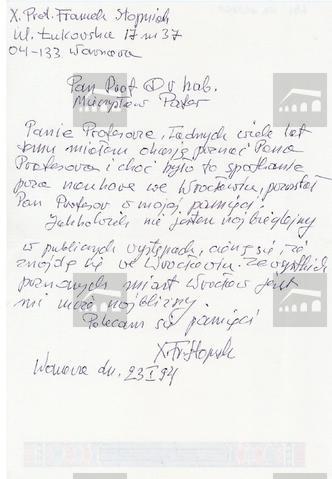 X. Prof. Franciszek Stopniak
ul. Łukowska 17 m 37
04-133 Warszawa
Pan Prof Dr hab.
Mieczysław Pater
Panie Profesorze, ładnych wiele lat
temu miałem okazję poznać Pana
Profesora i choć było to spotkanie
poza naukowe we Wrocławiu, pozostał
Pan Profesor w mojej pamięci.
Jakkolwiek nie jestem najbieglejszy
w publicznych występach, cieszę się, że
znajdę się we Wrocławiu. Ze wszystkich
poznanych miast Wrocław jest
mi może najbliższy.
Polecam się pamięci
X. Fr. Stopniak
Warszawa dn. 23 I 94